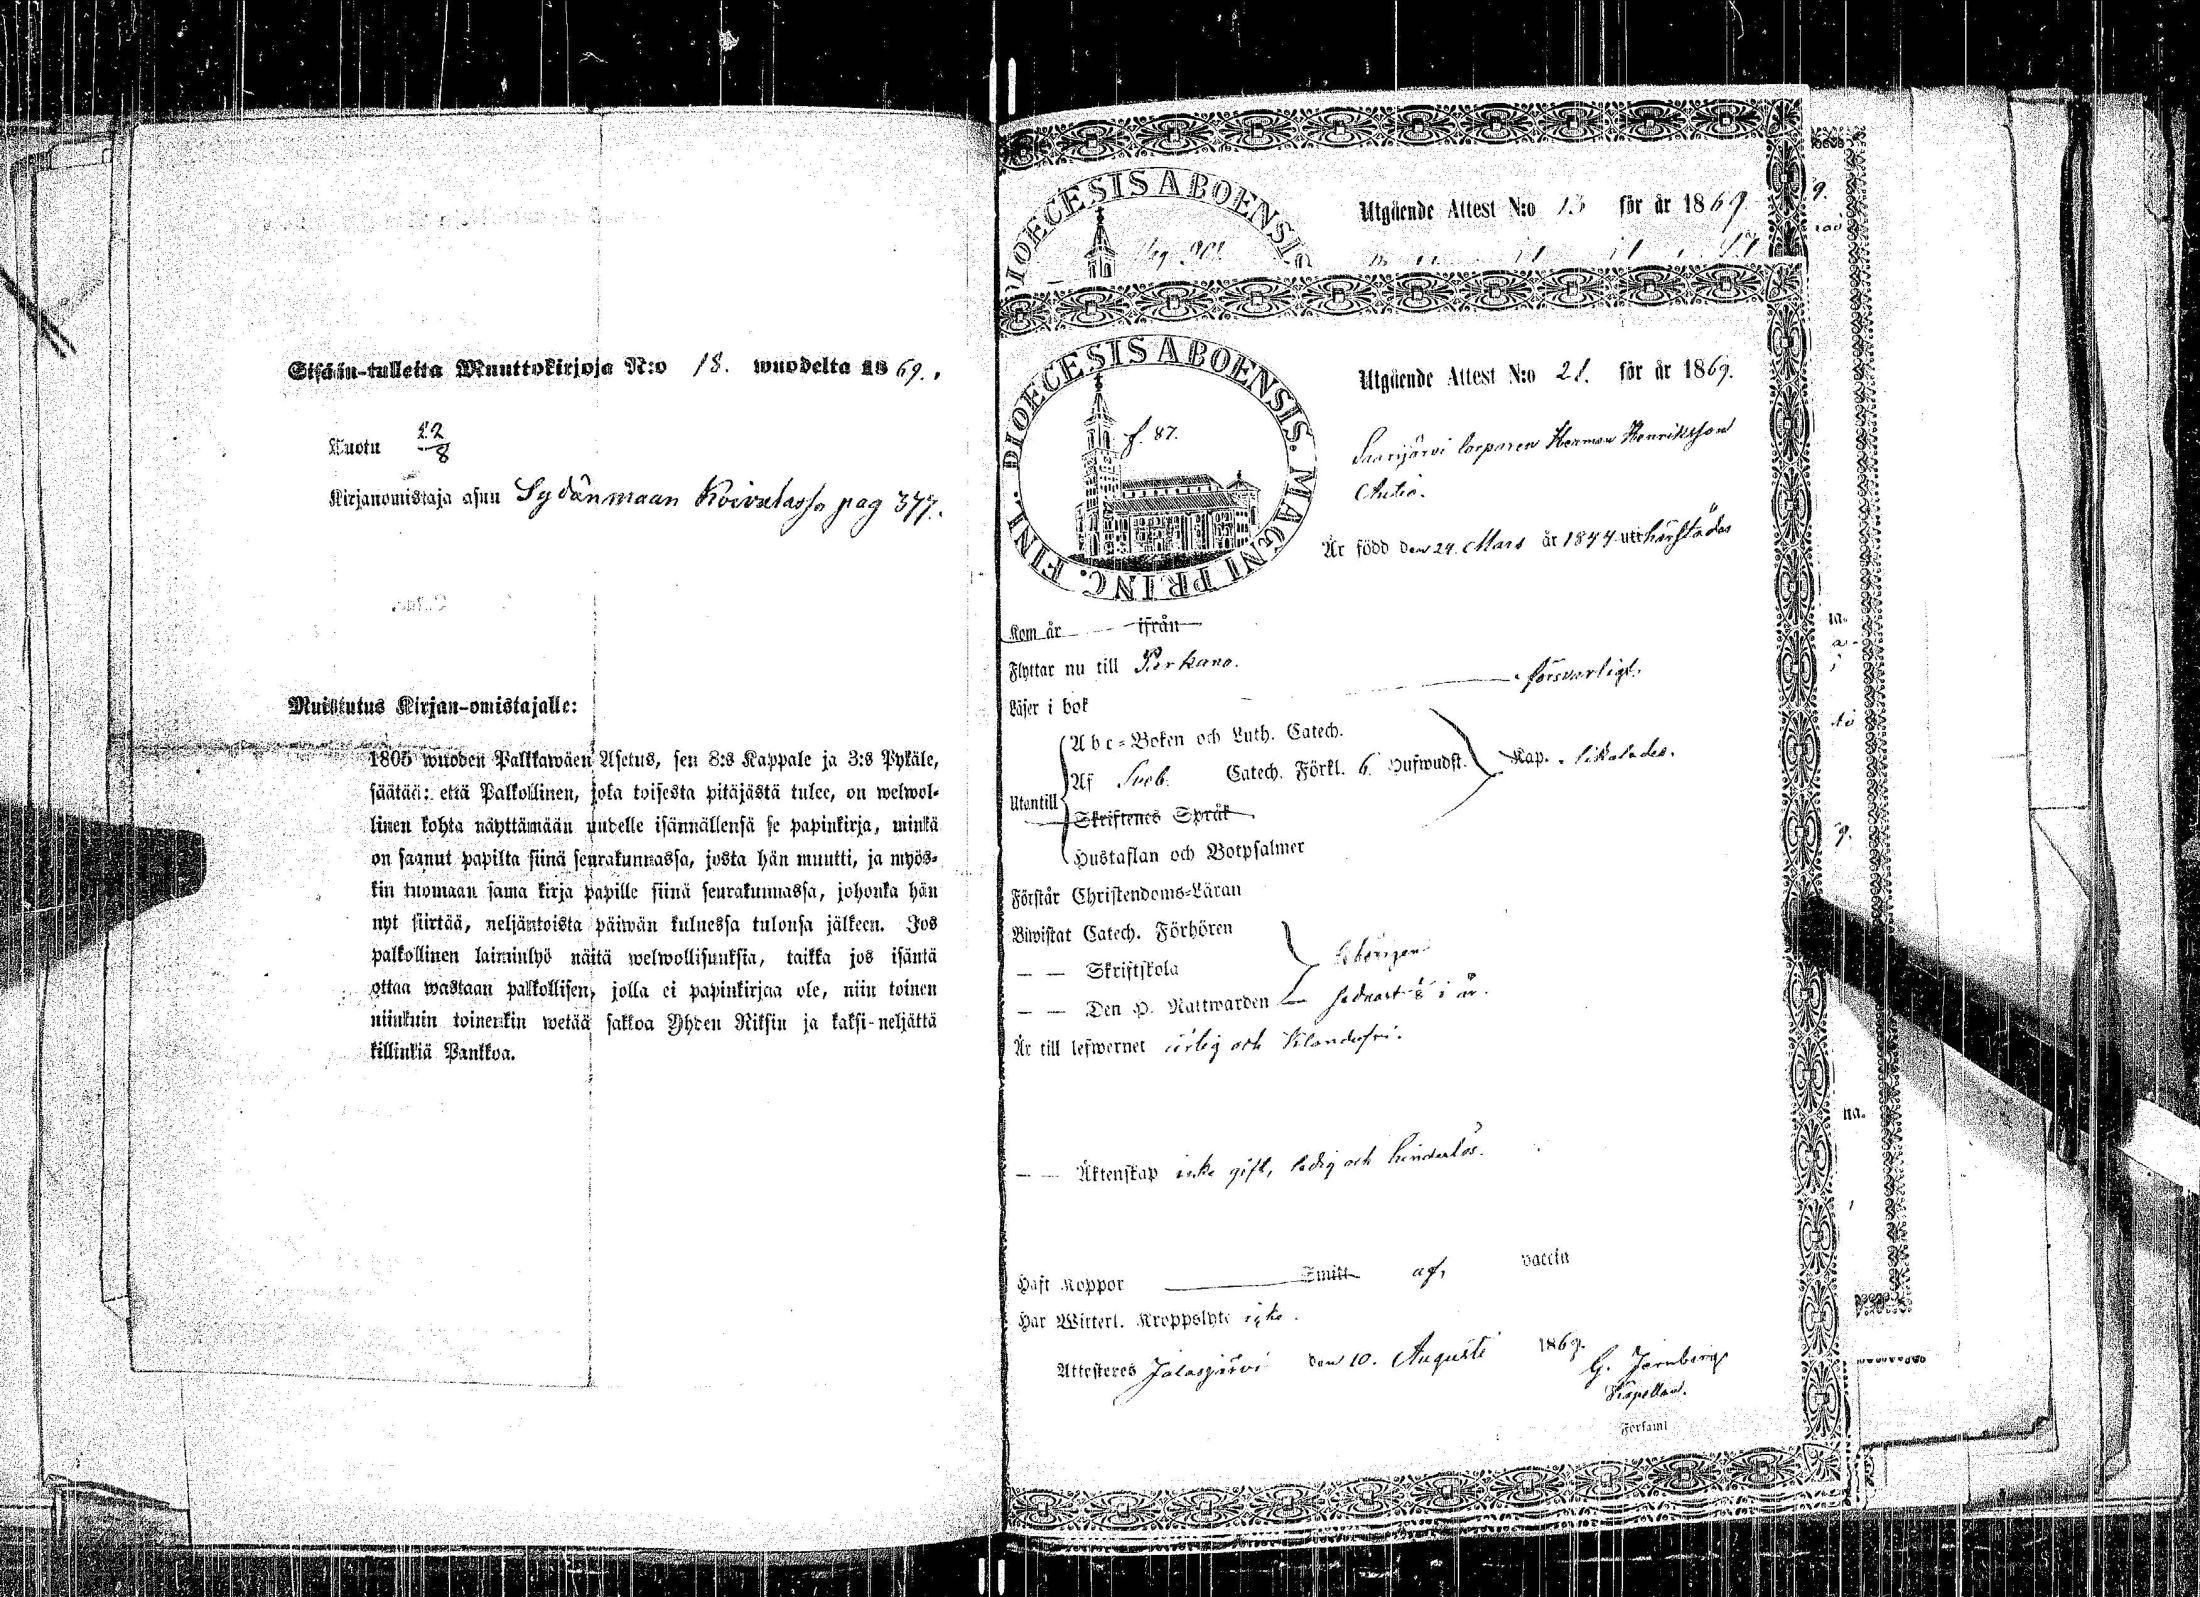 Sisään-tulleita Muuttokirjoja N:o 18. wuodelta 1869.
Tuotu 22/8
Kirjanomistaja asuu Sydänmaan Koivulassa pag 377.
Muistutus Kirjan-omistajalle:
1805 wuoden Palkkawäen Asetus, sen 8:s Kappale ja 3:s Pykäle,
säätää: että Palkollinen, joka toisesta pitäjästä tulee, on welwol-
linen kohta näyttämään uudelle isännällensä se papinkirja, minkä
on saanut papilta siinä seurakunnassa, josta hän muutti, ja myös-
kin tuomaan sama kirja papille siinä seurakunnassa, johonka hän
nyt siirtää, neljäntoista päiwän kuluessa tulonsa jälkeen. Jos
palkollinen laiminlyö näitä welwollisuuksia, taikka jos isäntä
ottaa wastaan palkollisen, jolla ei papinkirjaa ole, niin toinen
niinkuin toinenkin wetää sakkoa Yhden Riksin ja kaksi-neljättä
killinkiä Pankkoa.
DIOECESIS ABOENSI
Utgående Attest N:o 13 för år 1869
DIOECESIS ABOENSIS. MAGNI PRINC. FINL.
f. 87.
Utgående Attest N:o 21. för år 1869.
Saarijärvi torparen Herman Henriksson
Autio.
Är född den 24. Mars år 1844 uti härstädes
Kom år ifrån
Flyttar nu till Parkano.
Läser i bok försvarligt.
Utantill
Abc-Boken och Luth. Catech.
Af Sveb. Catech. Förkl. 6 Hufwudst. Kap. likaledes.
Skriftenes Språk
Hustaflan och Botpsalmer
Förstår Christendoms-Läran
Biwistat Catech. Förhören
— — Skriftskola
— — Den H. Nattwarden sednast i år.
Är till lefwernet ärlig och klanderfri.
— — Äktenskap icke gift, ledig och hinderlös.
Haft Koppor Smitt af vaccin
Har Witterl. Kroppslyte icke.
Attesteres Jalasjärvi den 10. Augusti 1869.
G. Jernberg
Kapellan.
Församl